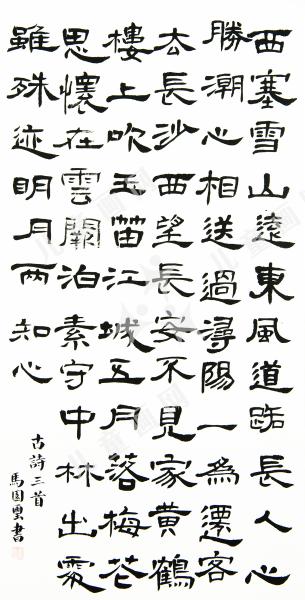 西塞雪山遠東風道路長人心
勝潮心相送過潯陽一為遷客
去長沙西望長安不見家黃鶴
樓上吹玉笛江城五月落梅花
思懷在雲闕泊素守中林出處
雖殊迹明月两知心
古詩三首
馬国璽書